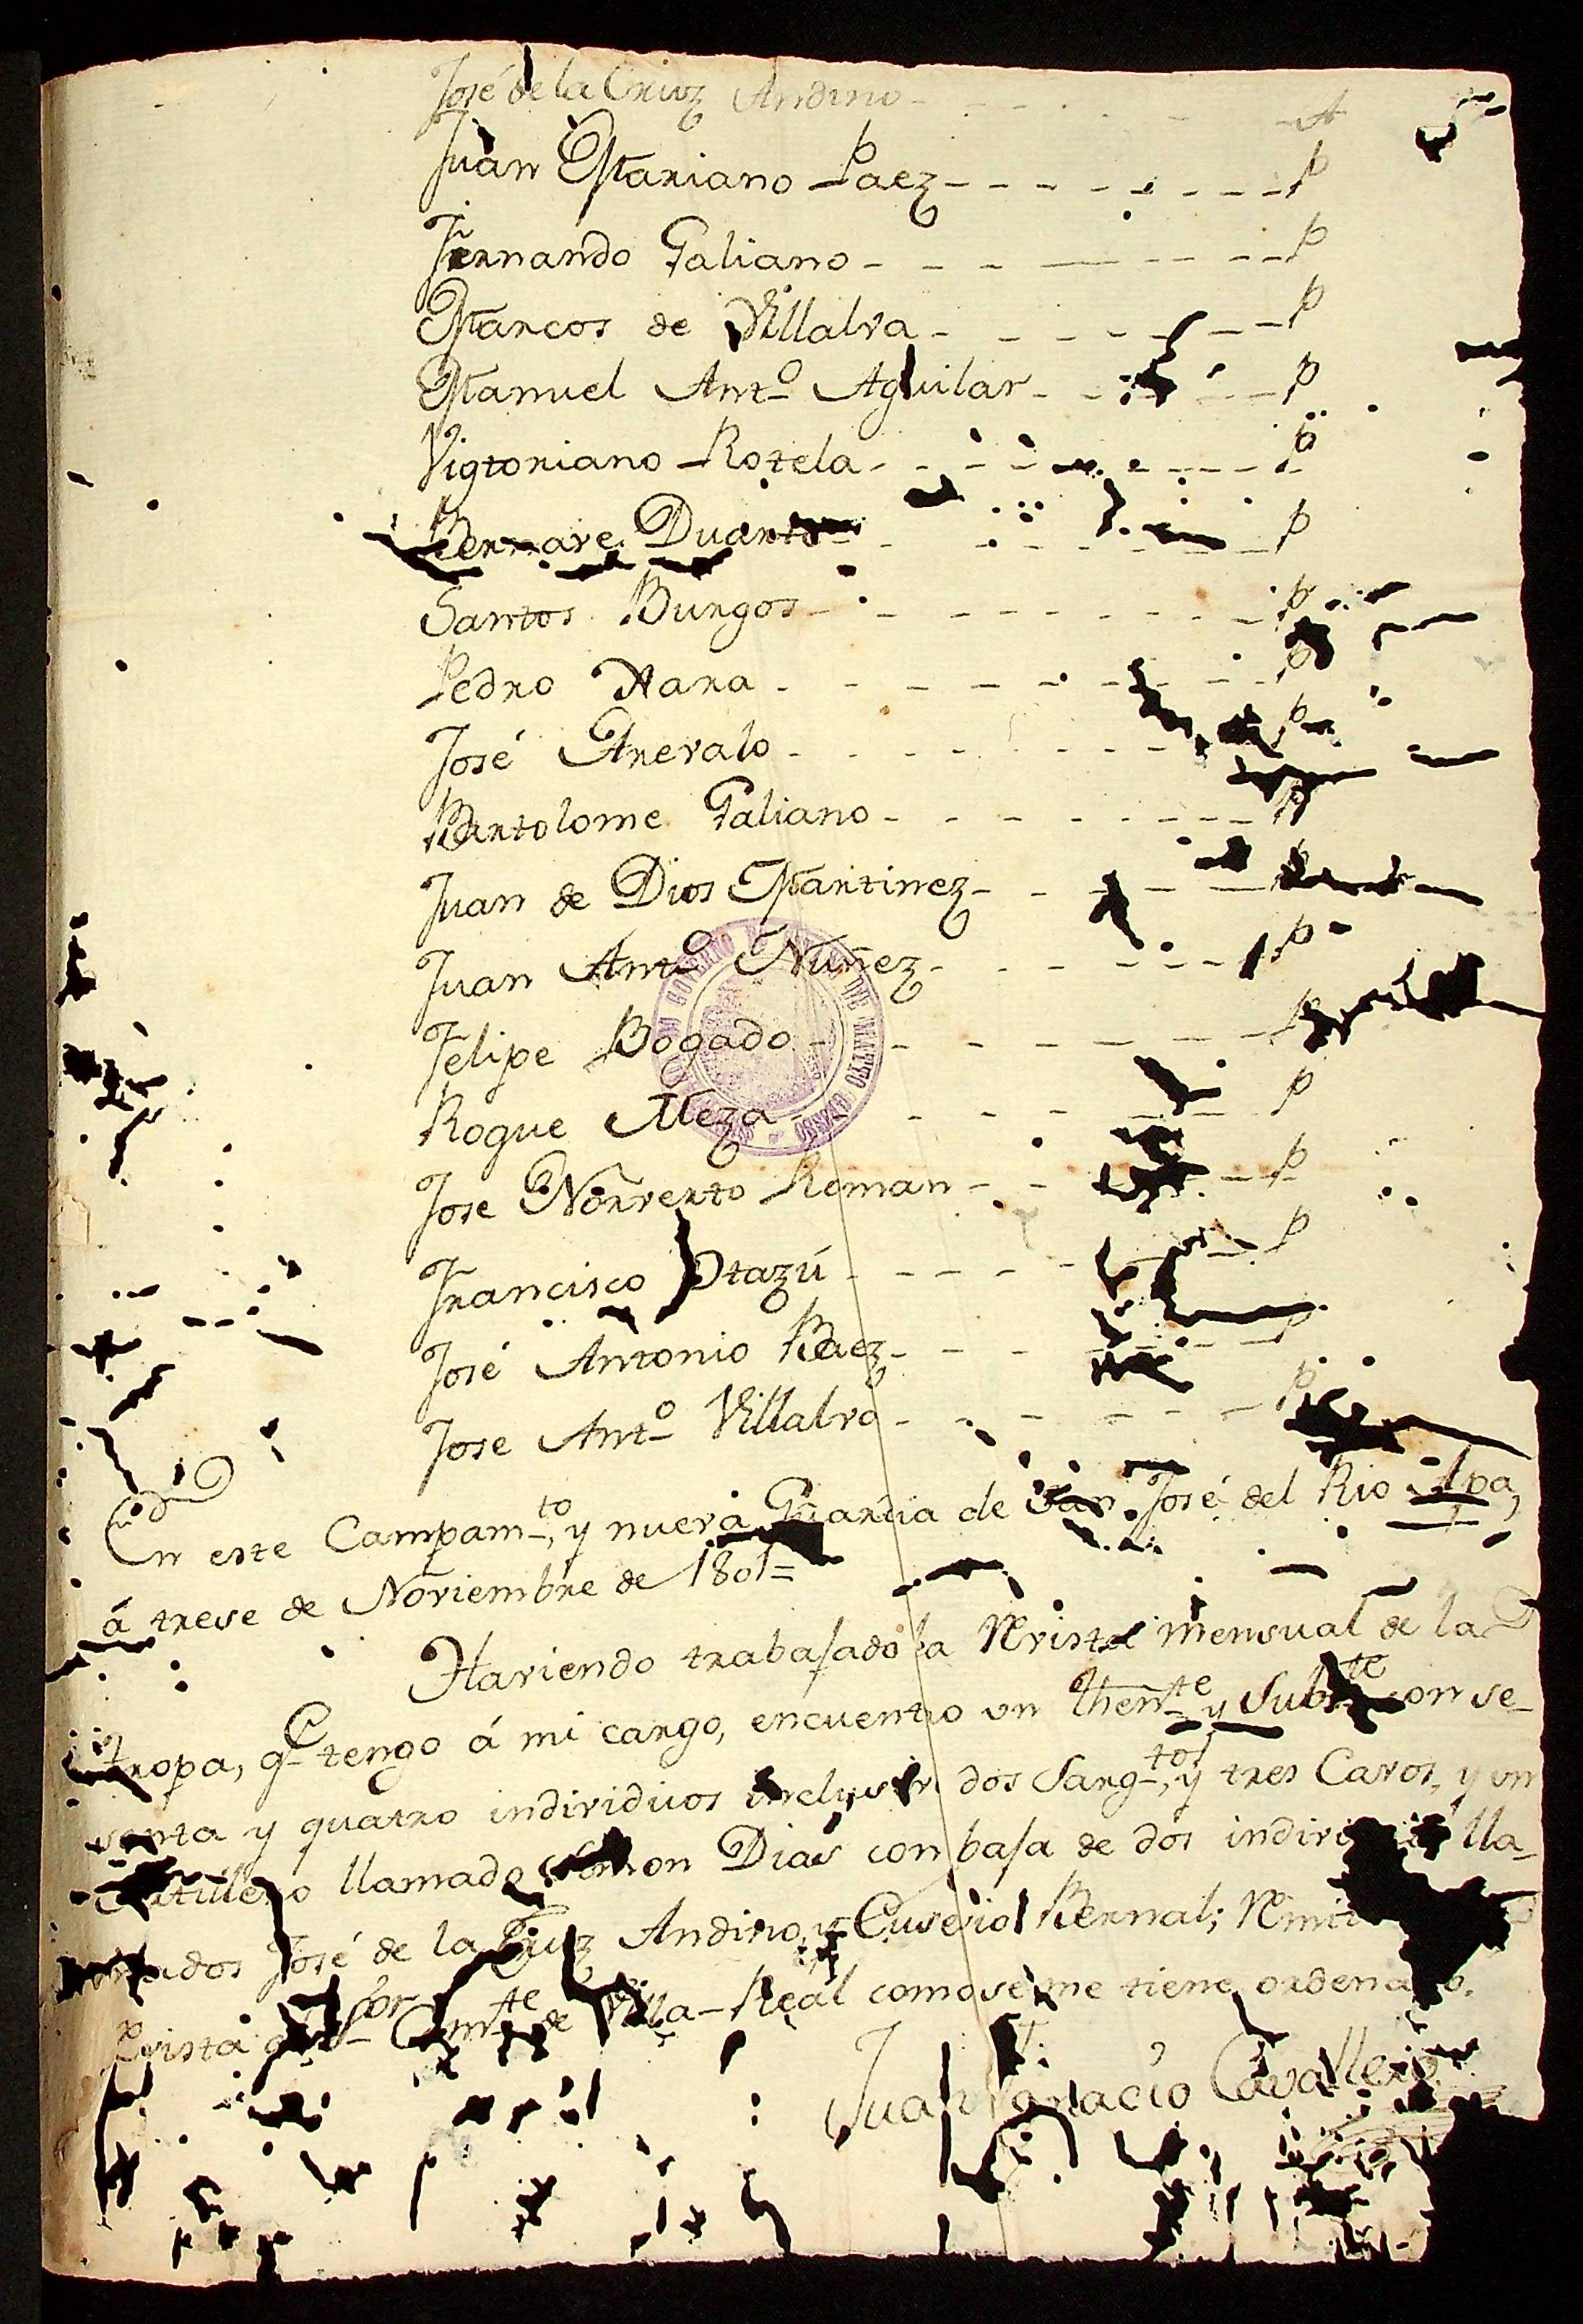 José de la Cruz Andino - - - - - A
Juan Mariano Paez - - - - - - - - P
Fernando Galiano - - - - - - - P
Marcos de Villalva - - - - - - - P
Manuel Antº Aguilar - - - - - P
Vigtoriano Rotela - - - - - - - - P
Bernave Duarte - - - - - - P
Santos Burgos - - - - - - - - P
Pedro Nara - - - - - - - - - P
José Arevalo - - - - - - - P
Bartolome Galiano - - - - - - - - P
Juan de Dios Martinez - - - - -
Juan Antº Nuñez - - - - - - - P
Felipe Bogado - - - - - - - P
Roque Meza - - - - - - P
Jose Norverto Roman - - - - P
Francisco Otazú - - - - - - P
José Antonio Baez - - - - - - P
Jose Antº Villalva - - - - - - - P
En este Campamto, y nueva Guardia de San José del Rio Apa,
á trese de Noviembre de 1801=
Haviendo trabajado la Rvista mensual de la
tropa, qe tengo á mi cargo, encuentro un Thente y Subte con se-
senta y quatro individuos inclusive dos Sargtos, y tres Cavos, y un
Artillero llamado Simon Dias con baja de dos individuos lla-
mados José de la Cruz Andino, y Eusevio Bernal;
Rvista Comte de Villa-Real como se me tiene ordenado.
Juan Ignacio Cavallero